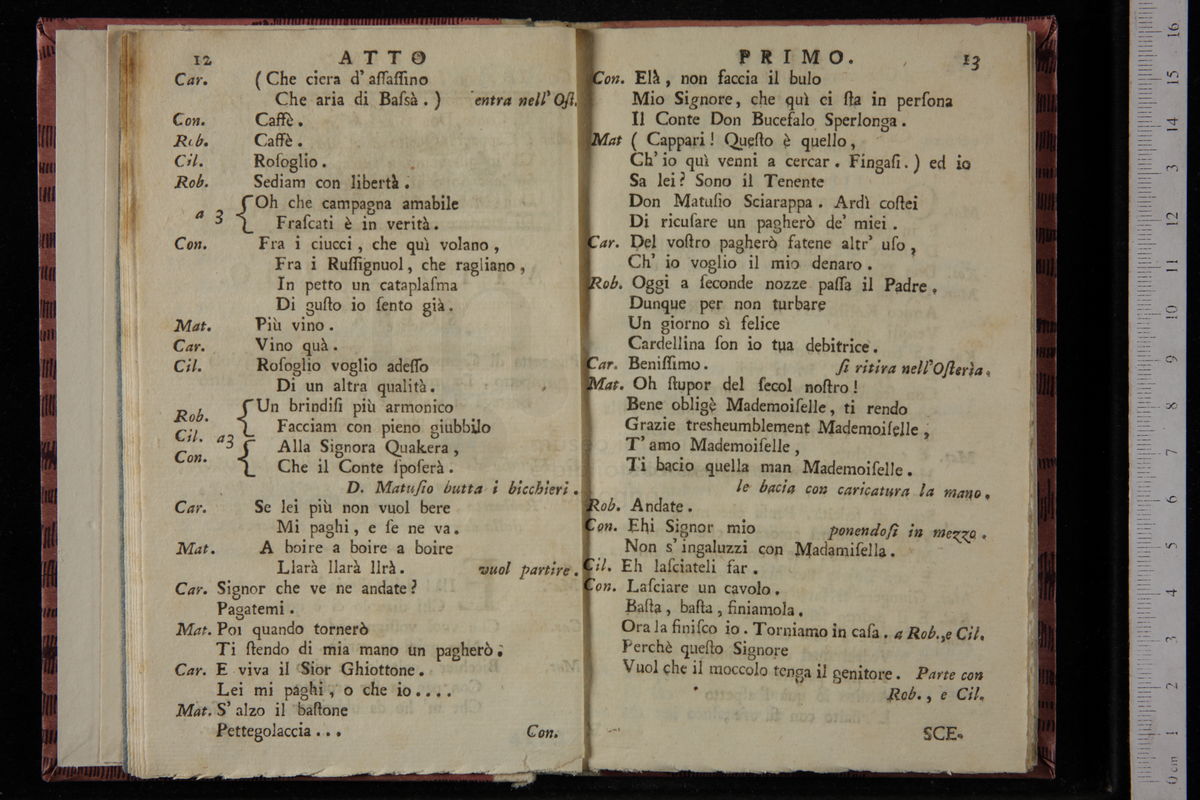 12 ATTO
Car. (Che ciera d' aſſaſſino
Che aria di Baſsà.) entra nell' Oſt.
Con. Caffè.
Rob. Caffè.
Cil. Roſoglio.
Rob. Sediam con libertà.
a 3 { Oh che campagna amabile
Fraſcati è in verità.
Con. Fra i ciucci, che quì volano,
Fra i Ruſſignuol, che ragliano,
In petto un cataplaſma
Di guſto io ſento già.
Mat. Più vino.
Car. Vino quà.
Cil. Roſoglio voglio adeſſo
Di un altra qualità.
Rob. Cil. Con. a3 { Un brindiſi più armonico
Facciam con pieno giubbilo
Alla Signora Quakera,
Che il Conte ſpoſerà.
D. Matuſio butta i bicchieri.
Car. Se lei più non vuol bere
Mi paghi, e ſe ne va.
Mat. A boire a boire a boire
Llarà llarà llrà. vuol partire.
Car. Signor che ve ne andate?
Pagatemi.
Mat. Poi quando tornerò
Ti ſtendo di mia mano un pagherò.
Car. E viva il Sior Ghiottone.
Lei mi paghi, o che io....
Mat. S' alzo il baſtone
Pettegolaccia... Con.
PRIMO. 13
Con. Elà, non faccia il bulo
Mio Signore, che quì ci ſta in perſona
Il Conte Don Bucefalo Sperlonga.
Mat ( Cappari! Queſto è quello,
Ch' io quì venni a cercar. Fingaſi.) ed io
Sa lei? Sono il Tenente
Don Matuſio Sciarappa. Ardì coſtei
Di ricuſare un pagherò de' miei.
Car. Del voſtro pagherò fatene altr' uſo,
Ch' io voglio il mio denaro.
Rob. Oggi a ſeconde nozze paſſa il Padre,
Dunque per non turbare
Un giorno sì felice
Cardellina ſon io tua debitrice.
Car. Beniſſimo. ſi ritira nell'Oſterìa.
Mat. Oh ſtupor del ſecol noſtro!
Bene obligè Mademoiſelle, ti rendo
Grazie tresheumblement Mademoiſelle,
T' amo Mademoiſelle,
Ti bacio quella man Mademoiſelle.
le bacia con caricatura la mano.
Rob. Andate.
Con. Ehi Signor mio ponendoſi in mezzo.
Non s' ingaluzzi con Madamiſella.
Cil. Eh laſciateli far.
Con. Laſciare un cavolo.
Baſta, baſta, finiamola.
Ora la finiſco io. Torniamo in caſa. a Rob., e Cil.
Perchè queſto Signore
Vuol che il moccolo tenga il genitore. Parte con
Rob., e Cil.
SCE-